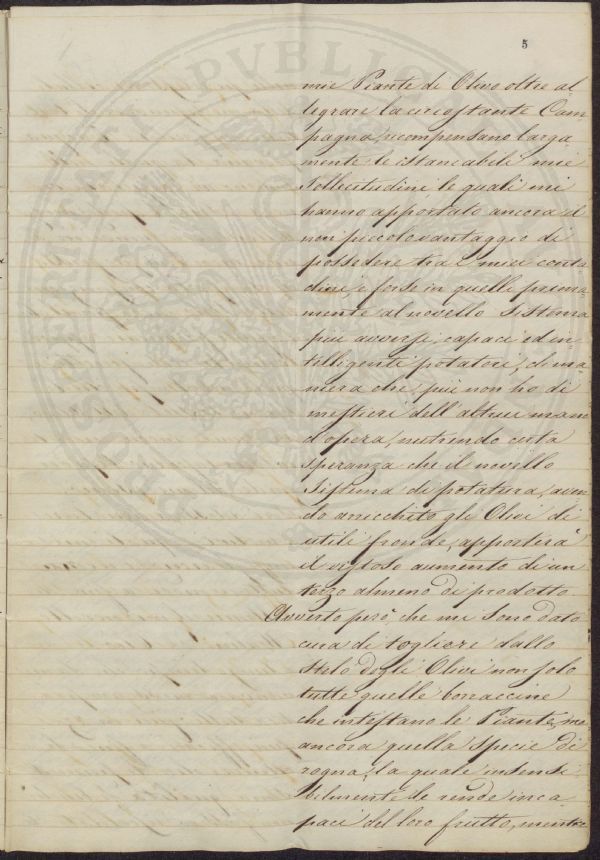 5
mie Piante di Olivo oltre al
legrare la circostante Cam
pagna, ricompensano larga
mente le istancabili mie
sollecitudini le quali mi
hanno apportato ancora il
non piccolo vantaggio di
possedere tra i miei conta
dini e forse in quelle prima
mente al novello sistema
più avversi, capaci ed in
telligenti potatori, di ma
niera che più non ho di
mestiere dell'altrui mano
d'opera, nutrendo certa
speranza che il novello
sistema di potatura, aven
do arricchito gli Olivi di
utili fronde, apporterà
il vistoso aumento di un
terzo almeno di prodotto
Avverto però, che mi sono dato
cura di togliere dallo
stelo degli Olivi non solo
tutte quelle boraccine
che infestano le Piante, ma
ancora quella specie di
rogna, la quale insensi
bilmente le rende inca
paci del loro frutto, mentre